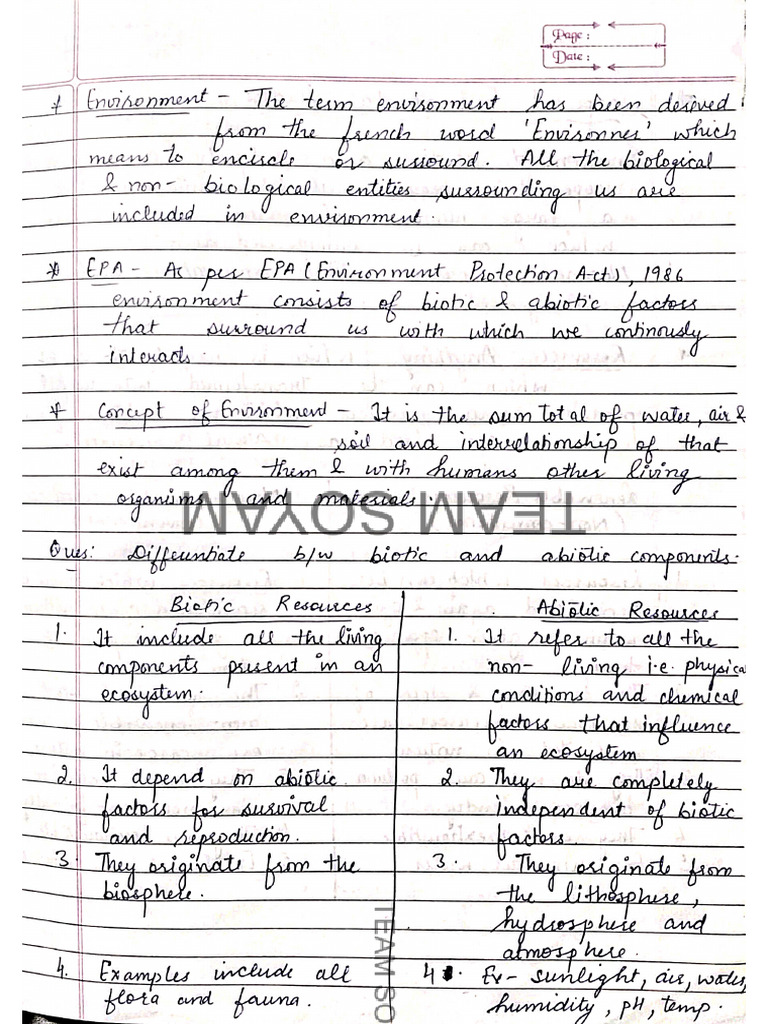 Page :
Date :
* Environment - The term environment has been derived
from the french word 'Environner' which
means to encircle or surround. All the biological
& non- biological entities surrounding us are
included in environment.
* EPA - As per EPA (Environment Protection Act), 1986
environment consists of biotic & abiotic factors
that surround us with which we continously
interacts
* Concept of Environment - It is the sum total of water, air &
soil and interrelationship of that
exist among them & with humans other living
organims and materials.
TEAM SOYAM
Ques: Differentiate b/w biotic and abiotic components.
Biotic Resources
1. It include all the living
components present in an
ecosystem.
2. It depend on abiotic
factors for survival
and reproduction.
3. They originate from the
biosphere.
4. Examples include all
flora and fauna.
Abiotic Resources
1. It refer to all the
non- living i.e. physical
conditions and chemical
factors that influence
an ecosystem
2. They are completely
independent of biotic
factors.
3. They originate from
the lithosphere,
hydrosphere and
atmosphere.
4. Ex- sunlight, air, water,
humidity, pH, temp.
TEAM SO